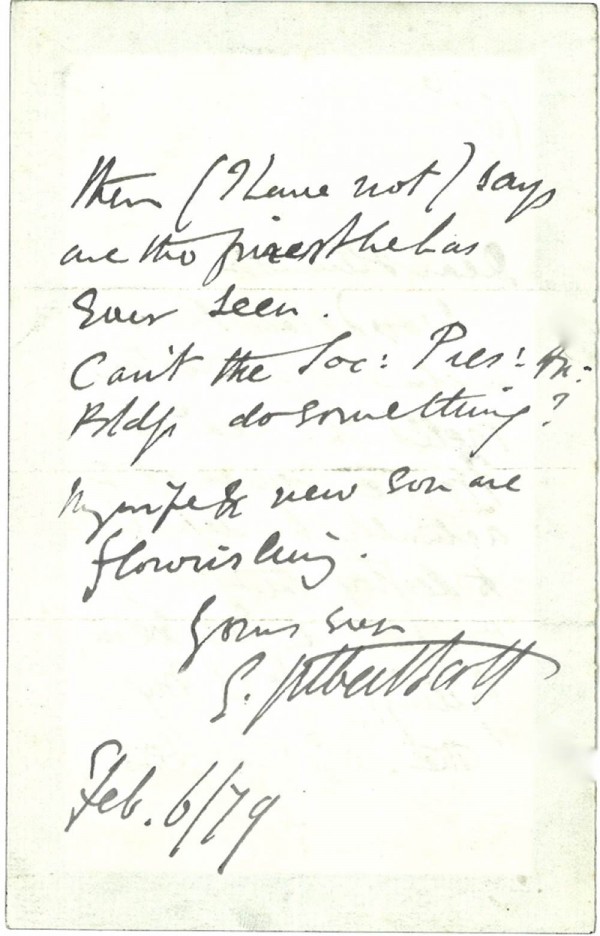 them (I have not) says
are the finest he has
ever seen.
Can't the Soc: Pres: An:
Bldgs do something?
My wife & new son are
flourishing.
Yours ever
G. Gilbert Scott
Feb. 6/79